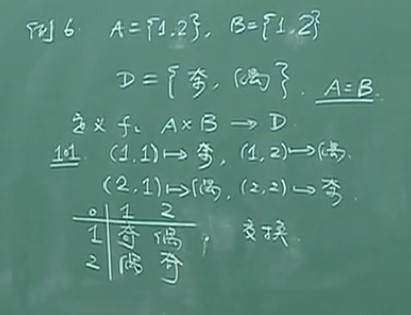 例6. A={1,2}, B={1,2}
D={奇, 偶}. A=B
定义 f: A×B → D
101. (1,1)↦奇, (1,2)↦偶.
(2,1)↦偶, (2,2)→奇
o 1 2
1 奇 偶 , 交换.
2 偶 奇